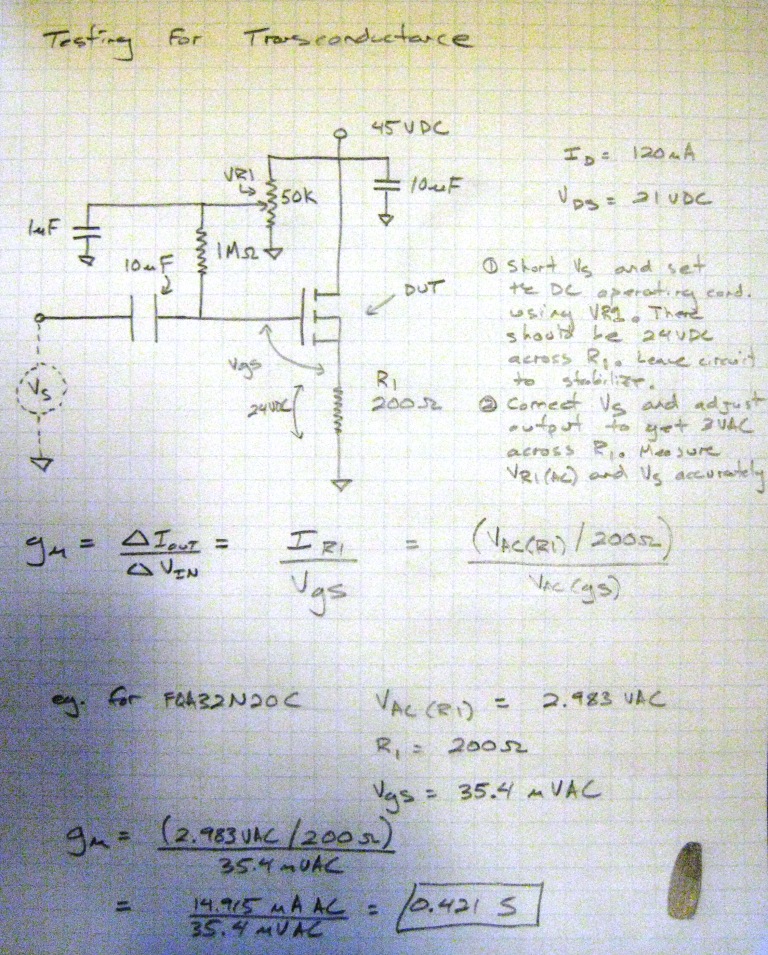 Testing For Transconductance
45VDC
I_D = 120mA
VR1
50K
10uF
V_DS = 21VDC
1uF
1MΩ
10uF
① Short Vs and set
the DC operating cond.
using VR1. There
should be 24VDC
across R1. Leave circuit
to stabilize.
DUT
Vgs
Vs
24VDC
R1
200Ω
② Connect Vs and adjust
output to get 3VAC
across R1. Measure
VR1(AC) and Vs accurately
gm = ΔIOUT / ΔVIN = IR1 / Vgs = (VAC(R1) / 200Ω) / VAC(gs)
eg. for FQA32N20C
VAC(R1) = 2.983 VAC
R1 = 200Ω
Vgs = 35.4 mVAC
gm = (2.983VAC / 200Ω) / 35.4mVAC
= 14.915 mA AC / 35.4 mVAC = 0.421 S